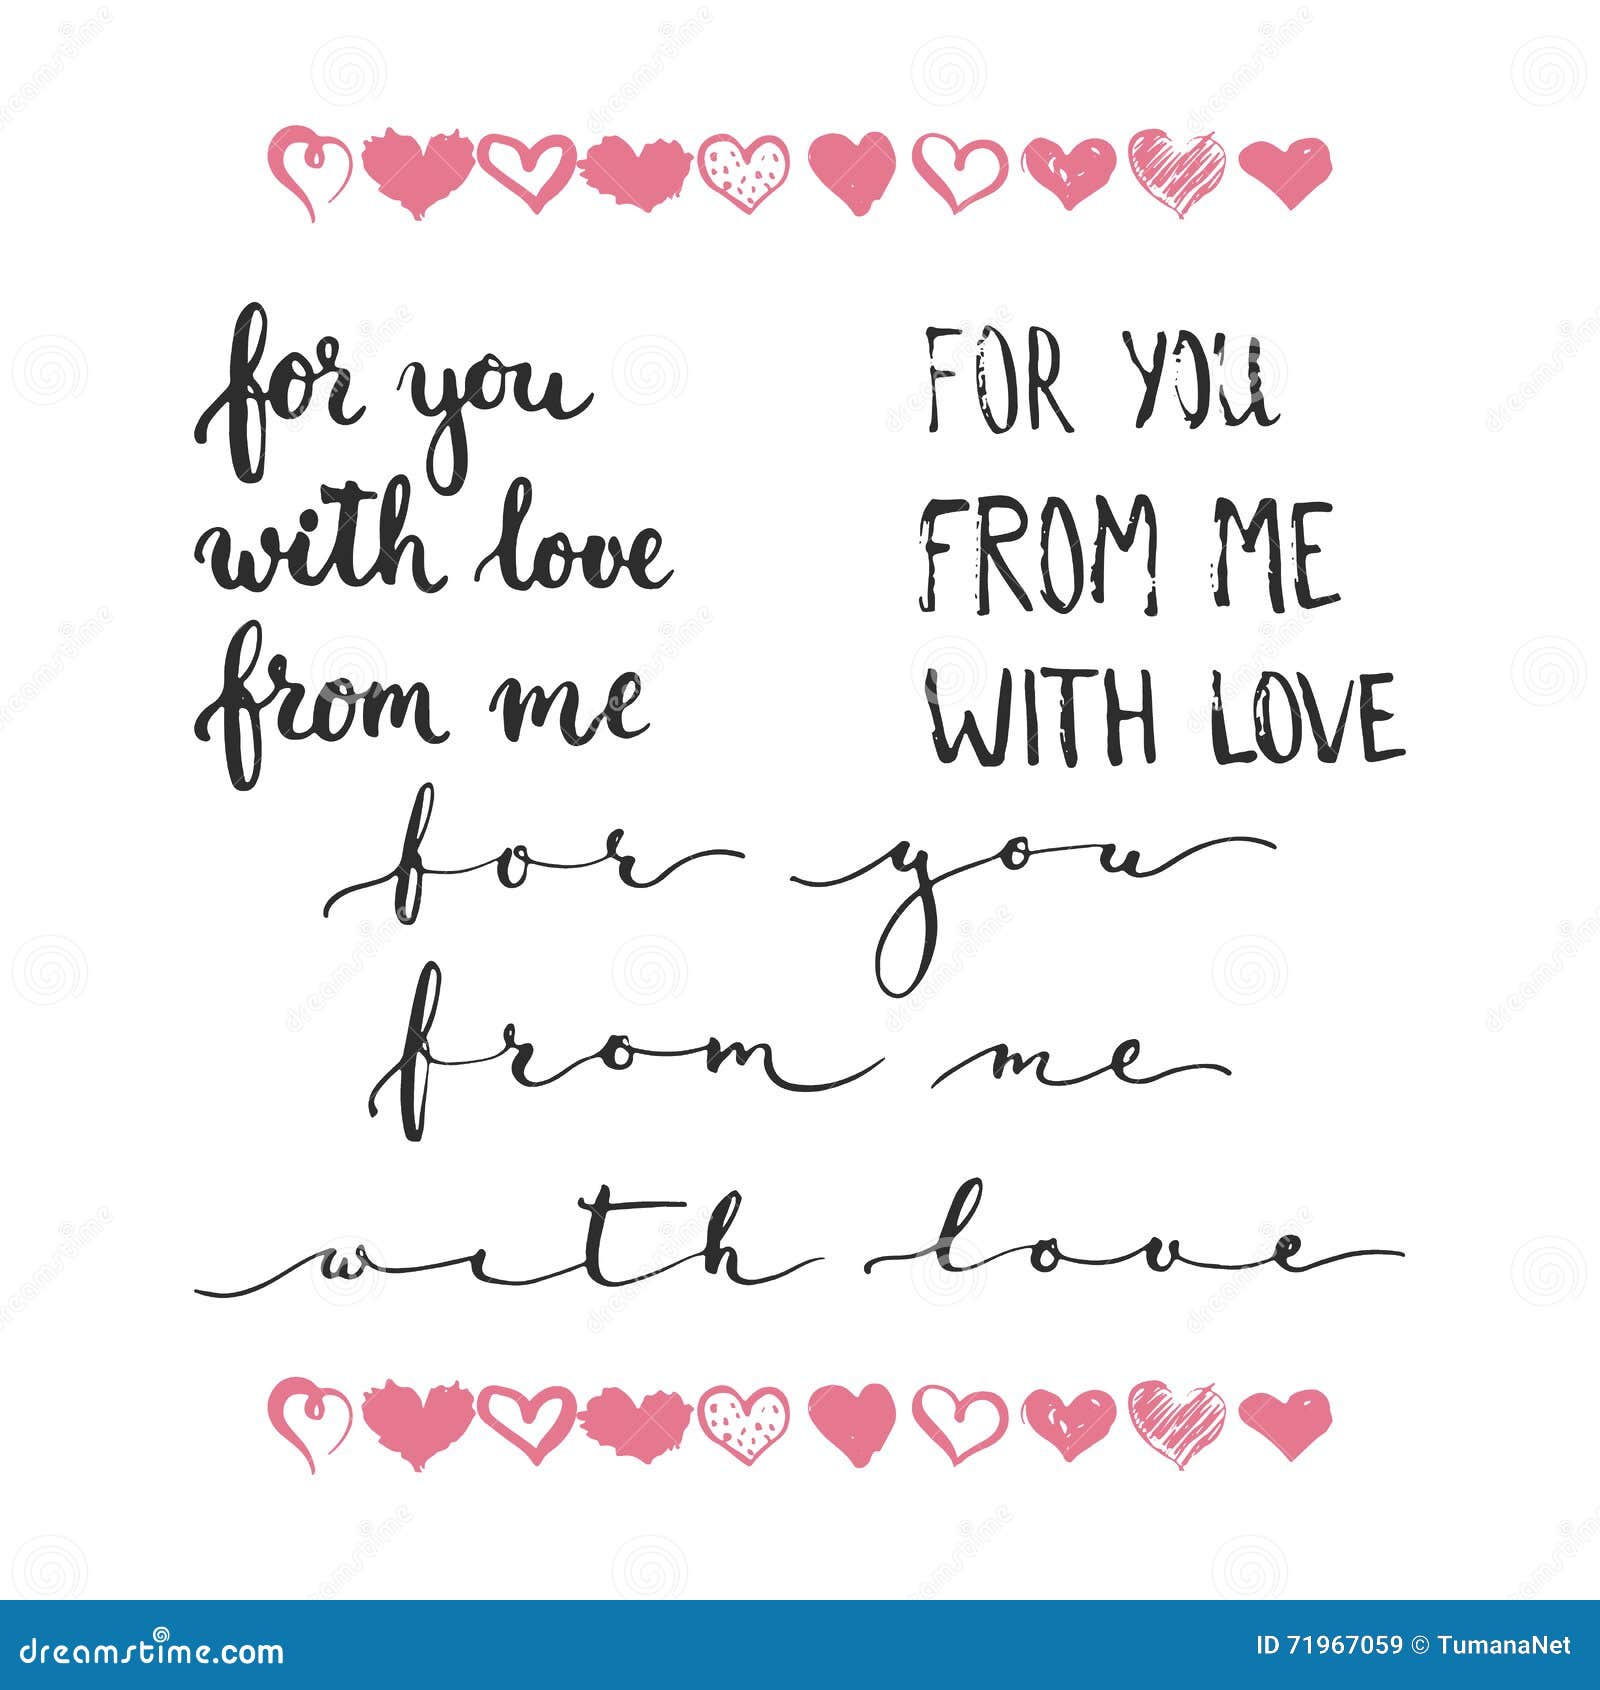 for you
with love
from me
FOR YOU
FROM ME
WITH LOVE
for you
from me
with love
dreamstime.com
ID 71967059 © TumanaNet